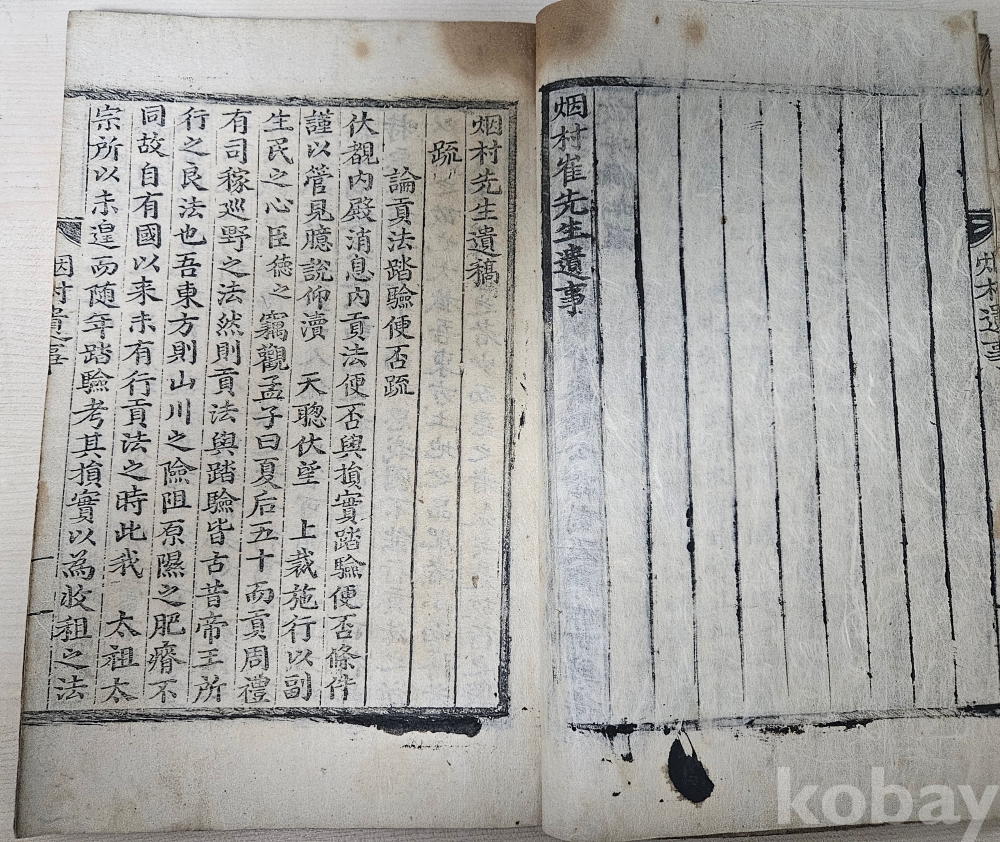 烟村遺事
烟村崔先生遺事
烟村先生遺稿
疏
論貢法踏驗便否疏
伏覩內殿消息內貢法便否與損實踏驗便否條件
謹以管見臆說仰瀆 天聰伏望 上裁施行以副
生民之心臣德之竊觀孟子曰夏后五十而貢周禮
有司稼巡野之法然則貢法與踏驗皆古昔帝王所
行之良法也吾東方則山川之險阻原隰之肥瘠不
同故自有國以来未有行貢法之時此我 太祖太
宗所以未遑而随年踏驗考其損實以為收租之法
烟村遺事
一
kobay